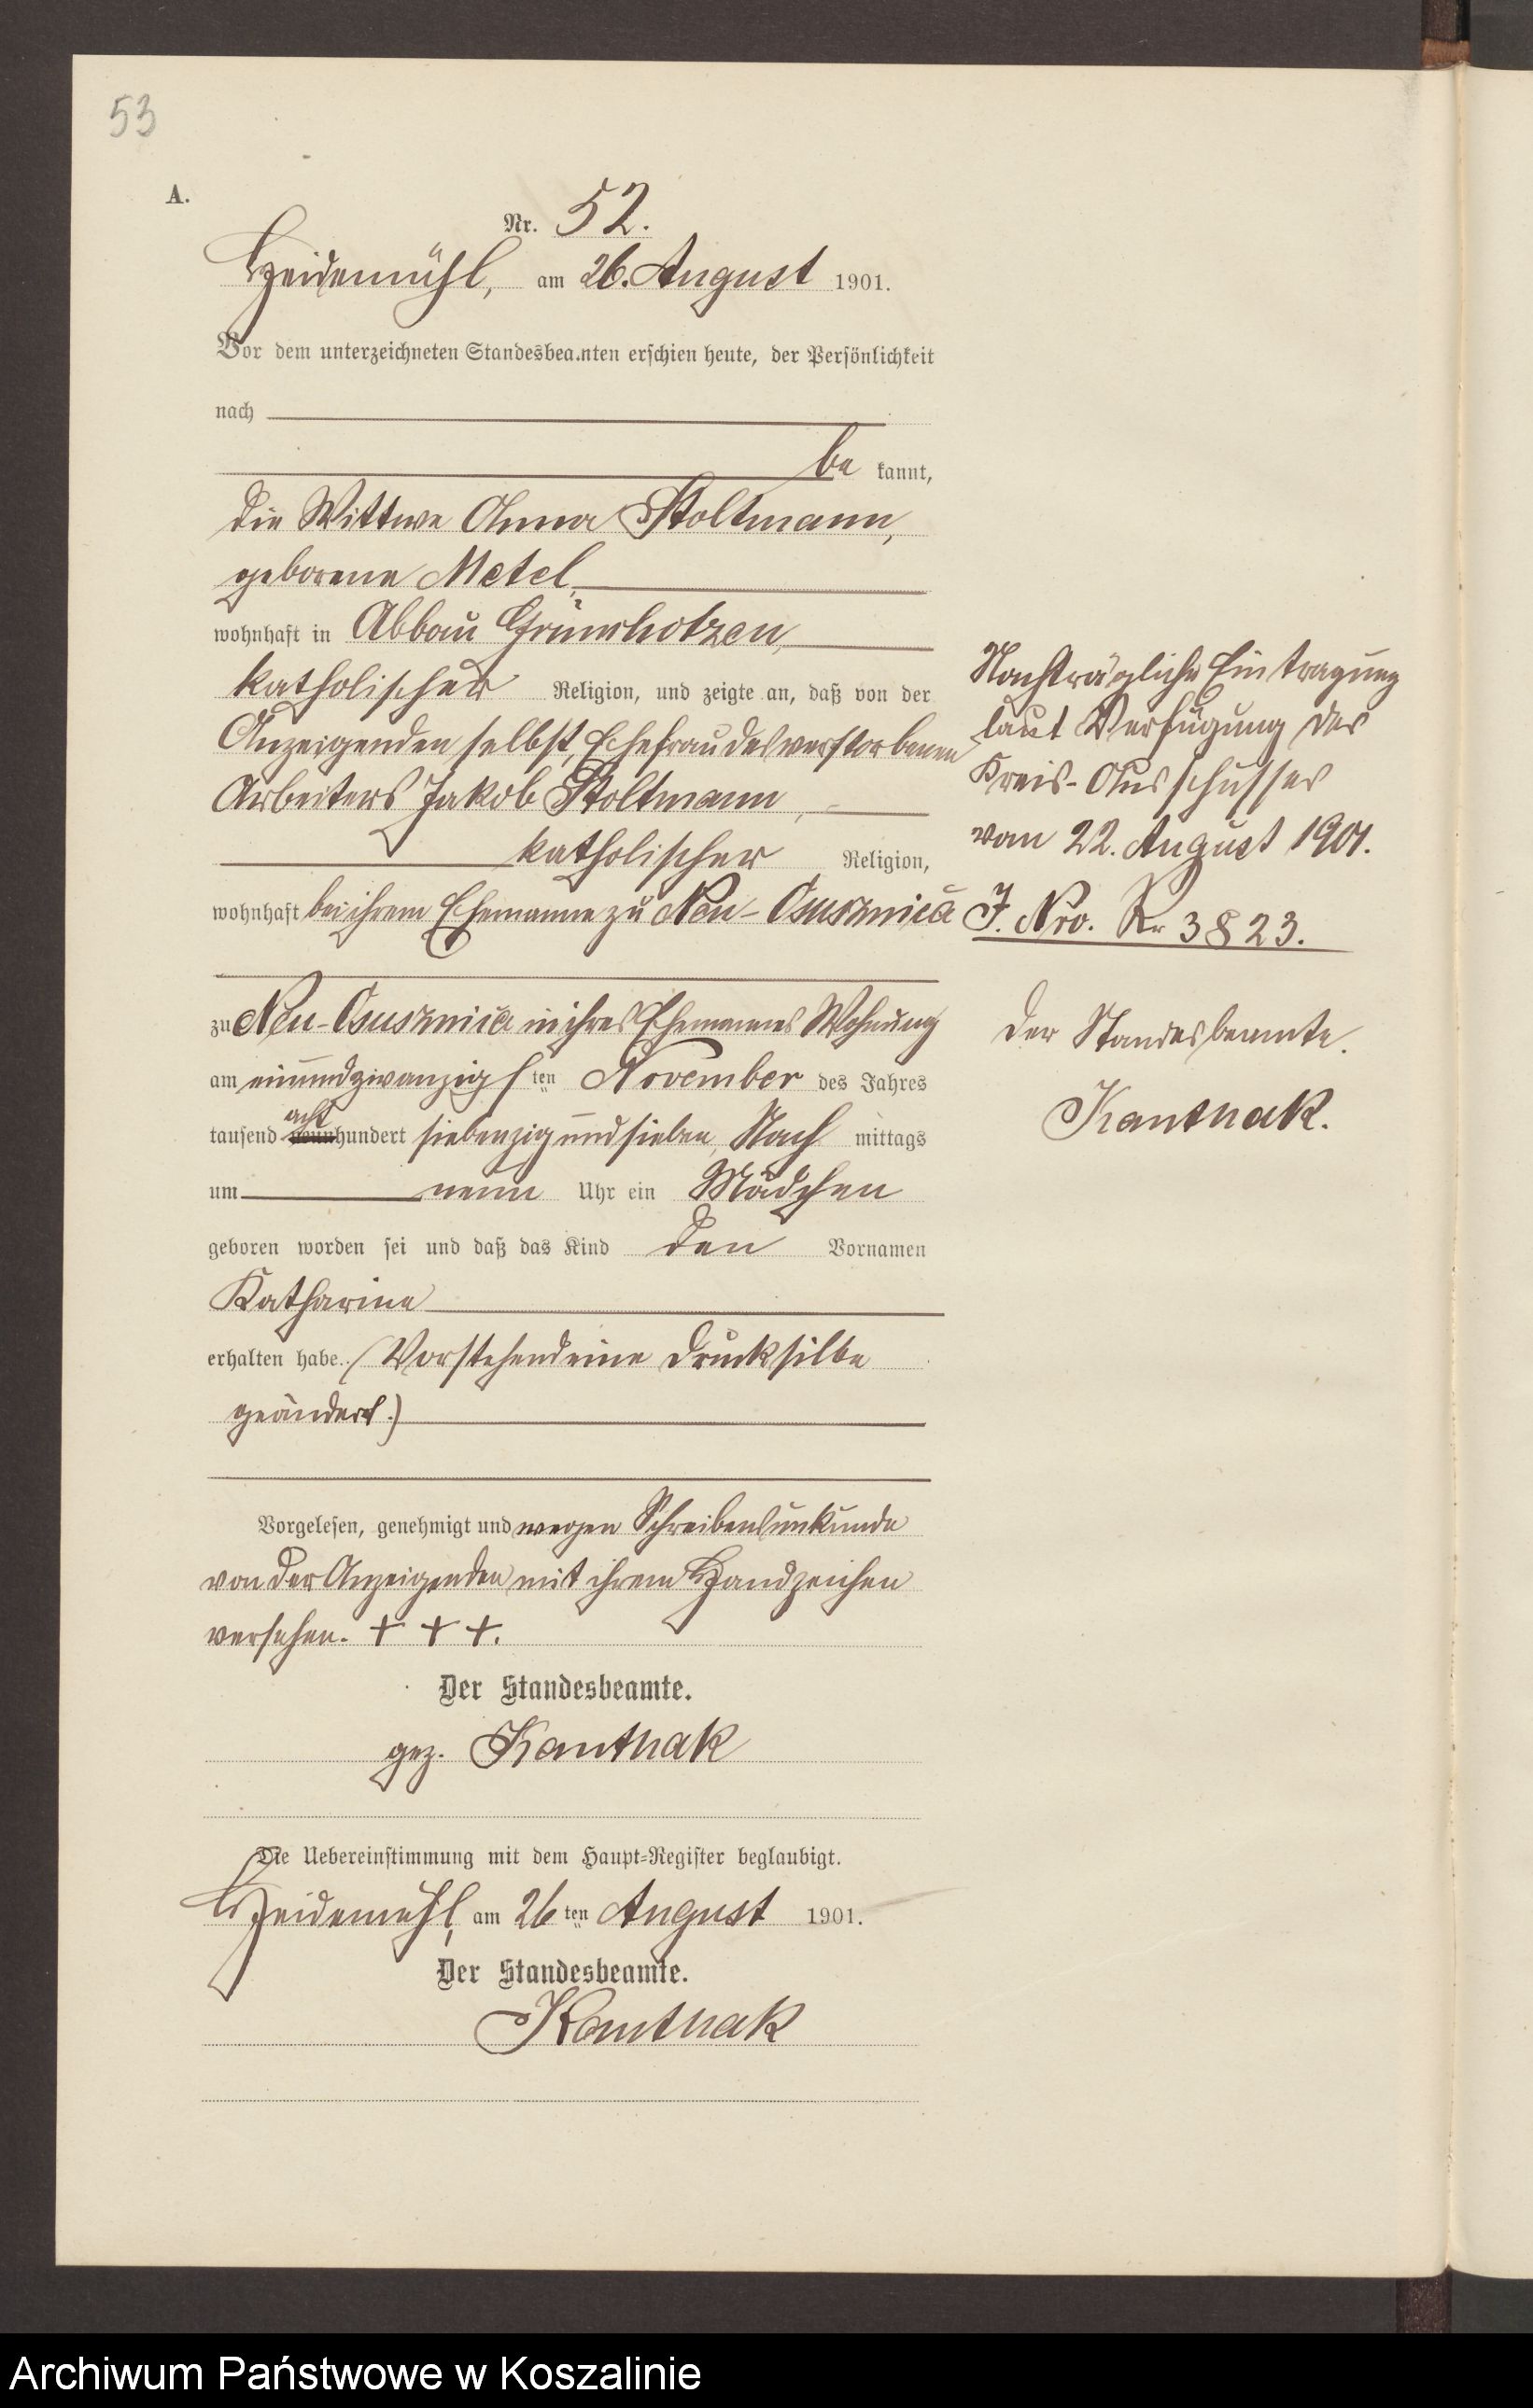 53
A.
Nr. 52.
Heidemühl, am 26. August 1901.
Vor dem unterzeichneten Standesbeamten erschien heute, der Persönlichkeit
nach
be kannt,
die Wittwe Anna Stoltmann,
geborene Metel,
wohnhaft in Abbau Grünchotzen,
katholischer Religion, und zeigte an, daß von der
Anzeigenden selbst, Ehefrau des verstorbenen
Arbeiters Jakob Stoltmann,
katholischer Religion,
wohnhaft bei ihrem Ehemanne zu Neu-Osusznica
zu Neu-Osusznica in ihres Ehemannes Wohnung
am einundzwanzigs ten November des Jahres
tausend acht neunhundert siebenzig und sieben, Nach mittags
um neun Uhr ein Mädchen
geboren worden sei und daß das Kind den Vornamen
Katharina
erhalten habe. (Vorstehend eine Drucksilbe
geändert.)
Vorgelesen, genehmigt und wegen Schreibensunkunde
von der Anzeigenden mit ihrem Handzeichen
versehen. + + +.
Der Standesbeamte.
gez. Kanthak
Die Uebereinstimmung mit dem Haupt-Register beglaubigt.
Heidemühl, am 26 ten August 1901.
Der Standesbeamte.
Kanthak
Nachträgliche Eintragung
laut Verfügung des
Kreis-Ausschusses
vom 22. August 1901.
J. Nro. Kr 3823.
Der Standesbeamte.
Kanthak.
Archiwum Państwowe w Koszalinie